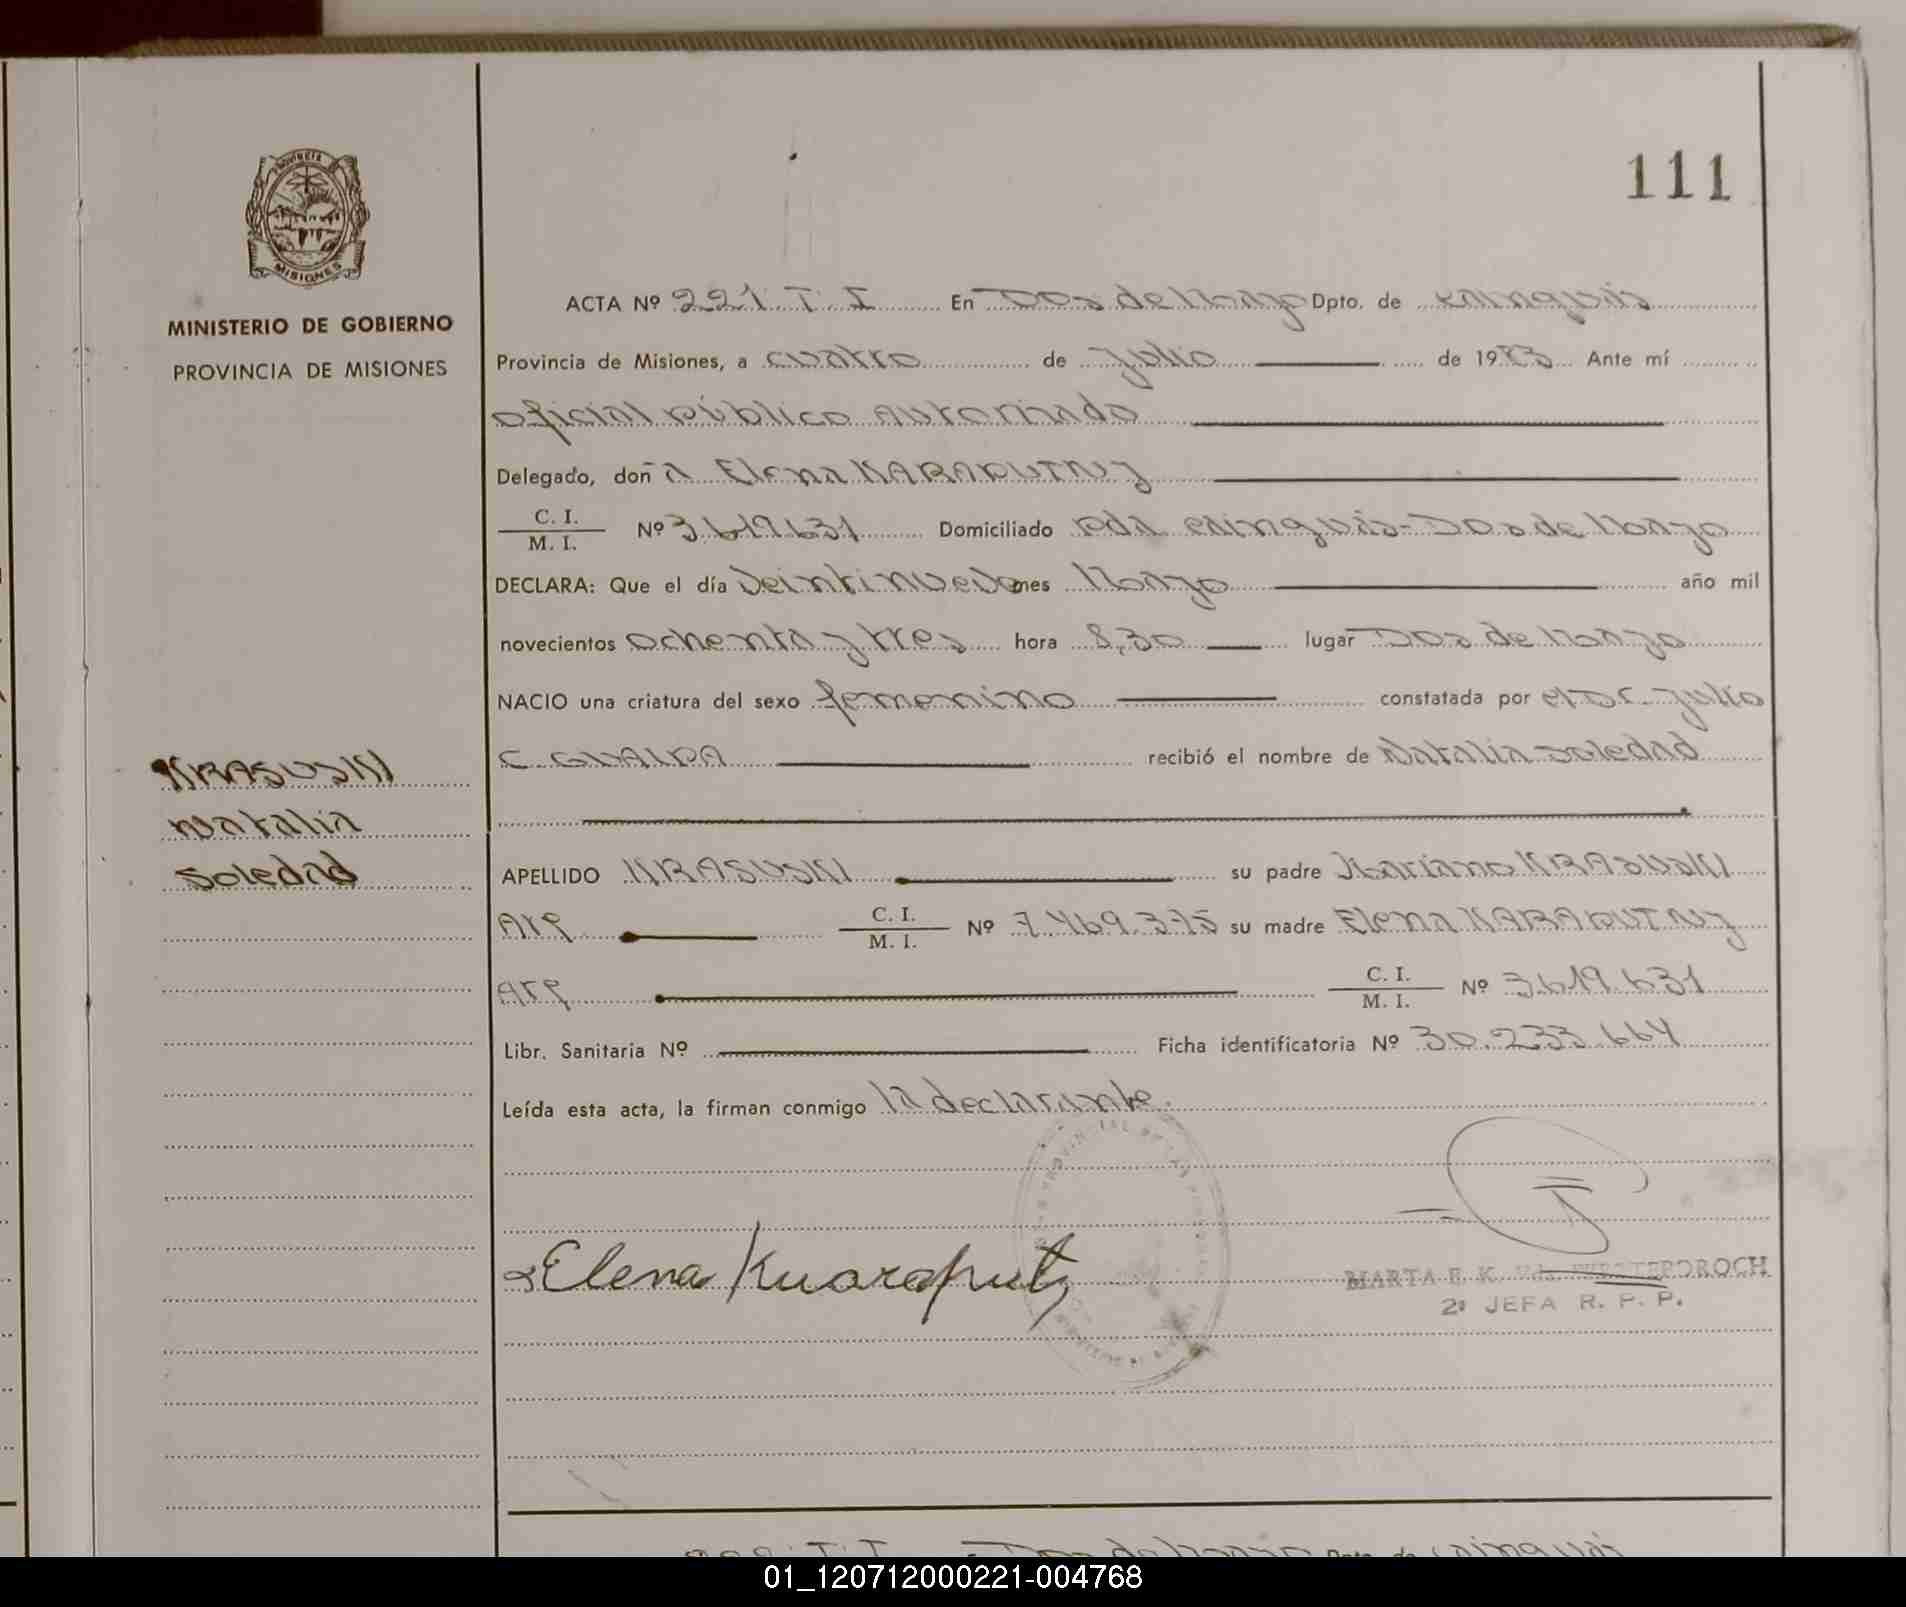 111
PROVINCIA
MISIONES
MINISTERIO DE GOBIERNO
PROVINCIA DE MISIONES
ACTA Nº 221 T. I En Dos de Marzo Dpto. de cainguás
Provincia de Misiones, a cuatro de julio de 1983 Ante mí
oficial público autorizado
Delegado, doñ a Elena KARAPUTNY
C. I.
M. I. Nº 3.619.631 Domiciliado pda cainguás-Dos de Marzo
DECLARA: Que el día veintinueve mes Marzo año mil
novecientos ochenta y tres hora 8,30 lugar Dos de Marzo
NACIO una criatura del sexo femenino constatada por el Dr. Julio
C. GUALPA recibió el nombre de Natalia Soledad
KRASUSKI
Natalia
Soledad
APELLIDO KRASUSKI su padre Mariano KRASUSKI
Arg C. I.
M. I. Nº 7.469.375 su madre Elena KARAPUTNY
Arg C. I.
M. I. Nº 3.619.631
Libr. Sanitaria Nº Ficha identificatoria Nº 30.233.664
Leída esta acta, la firman conmigo la declarante.
Elena Kuaraputz
MARTA E. K. Vda.
2ª JEFA R. P. P.
Dos de Marzo Dpto. de cainguás
01_120712000221-004768